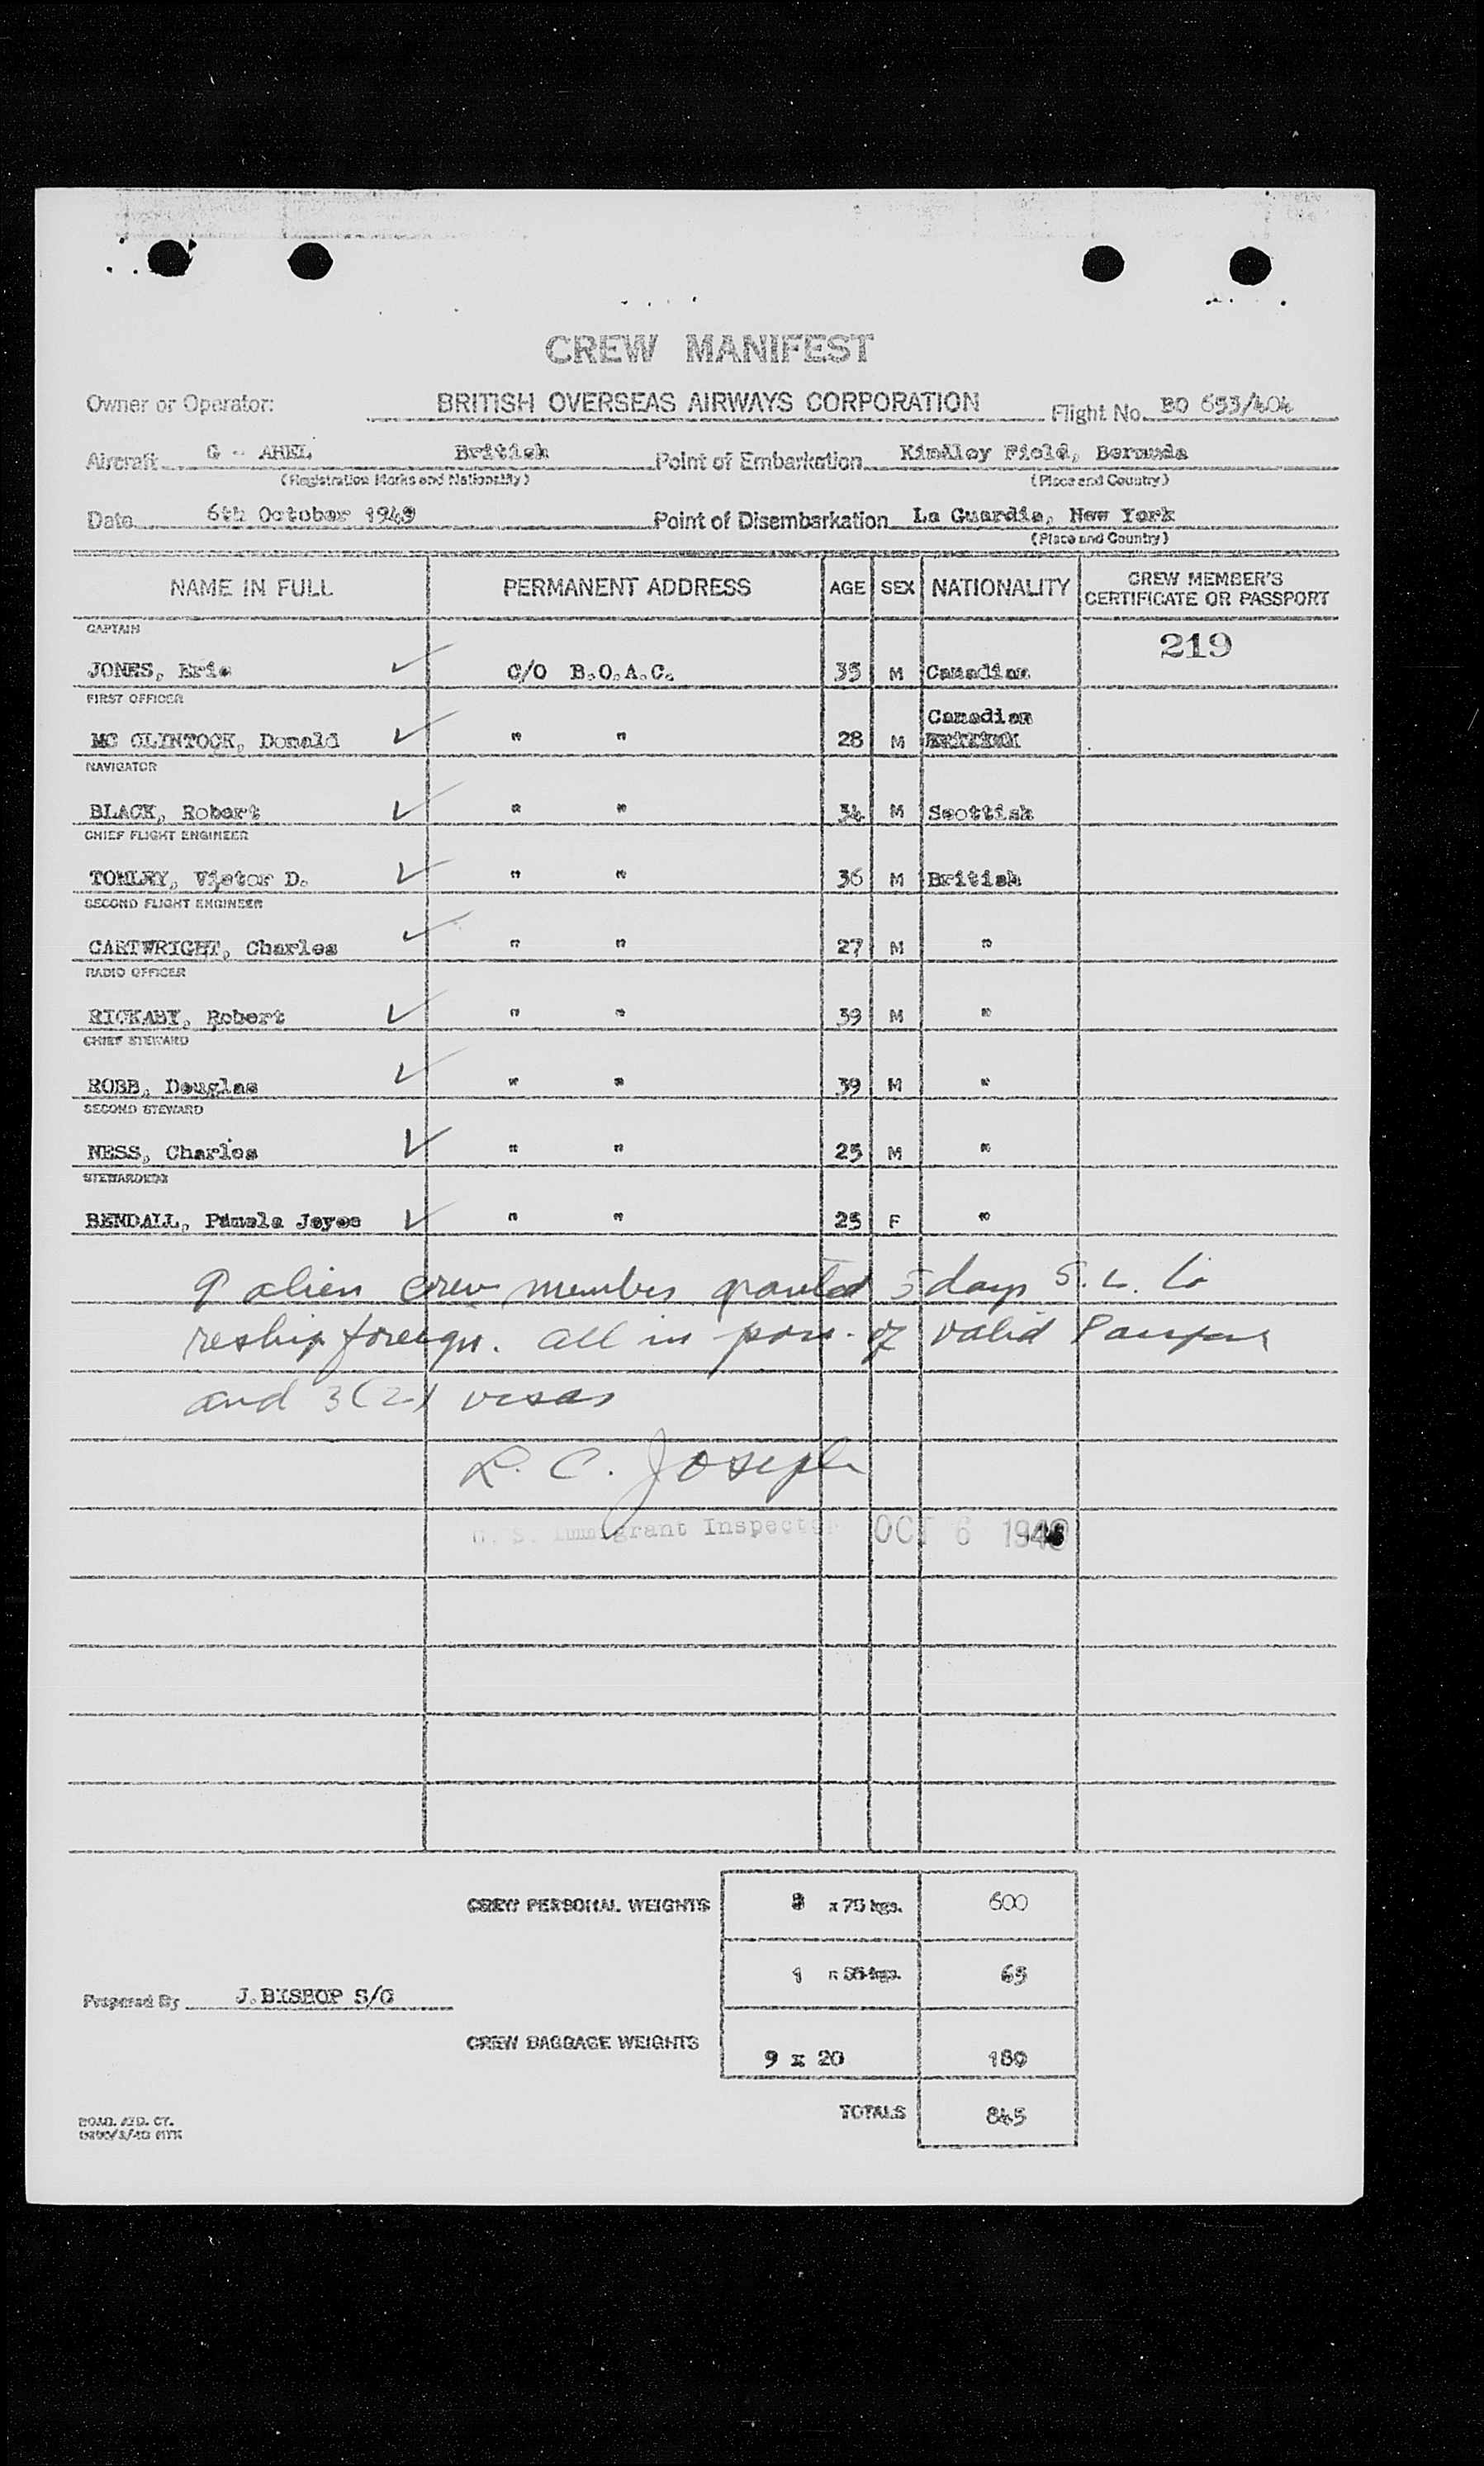 CREW MANIFEST
Owner or Operator: BRITISH OVERSEAS AIRWAYS CORPORATION Flight No. BO 653/404
Aircraft G - AHEL British Point of Embarkation Kindley Field, Bermuda
(Registration Marks and Nationality) (Place and Country)
Date 6th October 1949 Point of Disembarkation La Guardia, New York
(Place and Country)
NAME IN FULL PERMANENT ADDRESS AGE SEX NATIONALITY CREW MEMBER'S CERTIFICATE OR PASSPORT
CAPTAIN
219
JONES, Eric ✓ C/O B.O.A.C. 35 M Canadian
FIRST OFFICER
Canadian
MC CLINTOCK, Donald ✓ " " 28 M
NAVIGATOR
BLACK, Robert ✓ " " 34 M Scottish
CHIEF FLIGHT ENGINEER
TOMLEY, Victor D. ✓ " " 36 M British
SECOND FLIGHT ENGINEER
CARTWRIGHT, Charles ✓ " " 27 M "
RADIO OFFICER
RICKABY, Robert ✓ " " 39 M "
CHIEF STEWARD
ROBB, Douglas ✓ " " 39 M "
SECOND STEWARD
NESS, Charles ✓ " " 25 M "
STEWARDESS
BENDALL, Pamela Joyce ✓ " " 25 F "
9 alien crew members granted 5 days S. L. to
reship foreign. all in poss. of valid Passport
and 3(2) visas
L. C. Joseph
U. S. Immigrant Inspector OCT 6 1949
CREW PERSONAL WEIGHTS 8 x 75 kgs. 600
1 x 65 kgs. 65
Prepared By J. BISHOP S/O
CREW BAGGAGE WEIGHTS 9 x 20 180
TOTALS 845